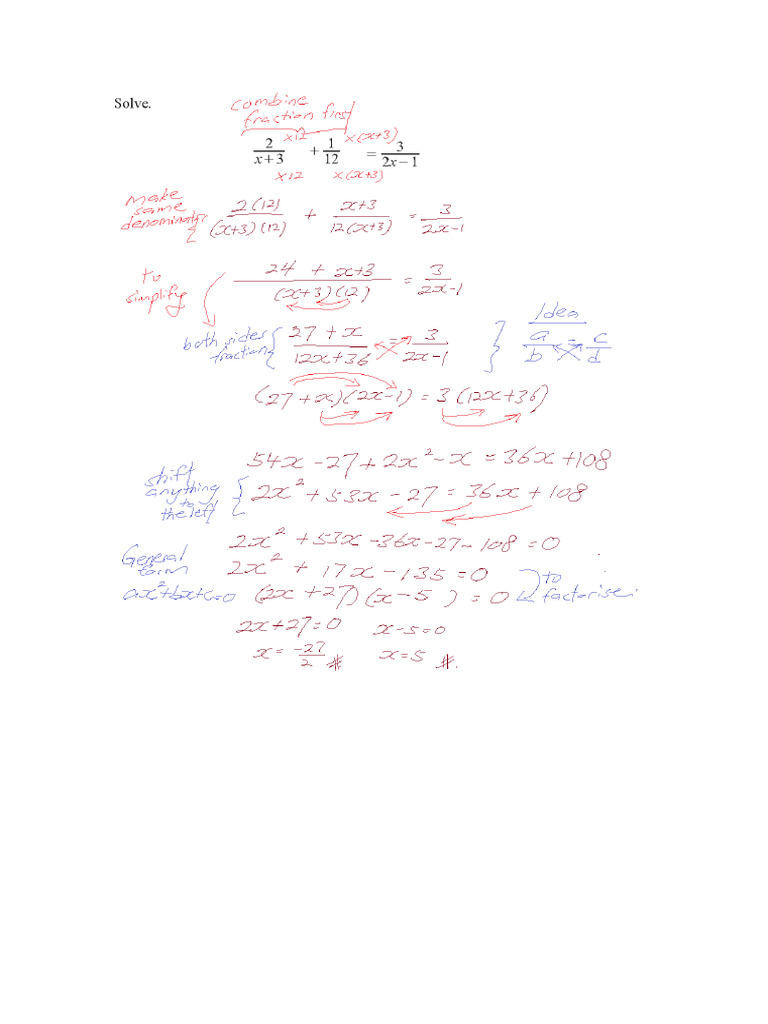 Solve.
combine
fraction first
×12 ×(x+3)
2/(x+3) + 1/12 = 3/(2x−1)
×12 ×(x+3)
Make
same
denominator {
2(12)/((x+3)(12)) + (x+3)/(12(x+3)) = 3/(2x−1)
to
simplify
(24 + x+3)/((x+3)(12)) = 3/(2x−1)
both sides
fraction {
(27+x)/(12x+36) = 3/(2x−1)
} Idea
a/b = c/d
(27+x)(2x−1) = 3(12x+36)
54x −27 + 2x² − x = 36x + 108
shift
anything
to
the left {
2x² + 53x − 27 = 36x + 108
2x² + 53x − 36x − 27 − 108 = 0
General
form
ax²+bx+c=0
2x² + 17x − 135 = 0
(2x + 27)(x − 5) = 0
to
factorise
2x+27=0 x−5=0
x = −27/2 # x=5 #.